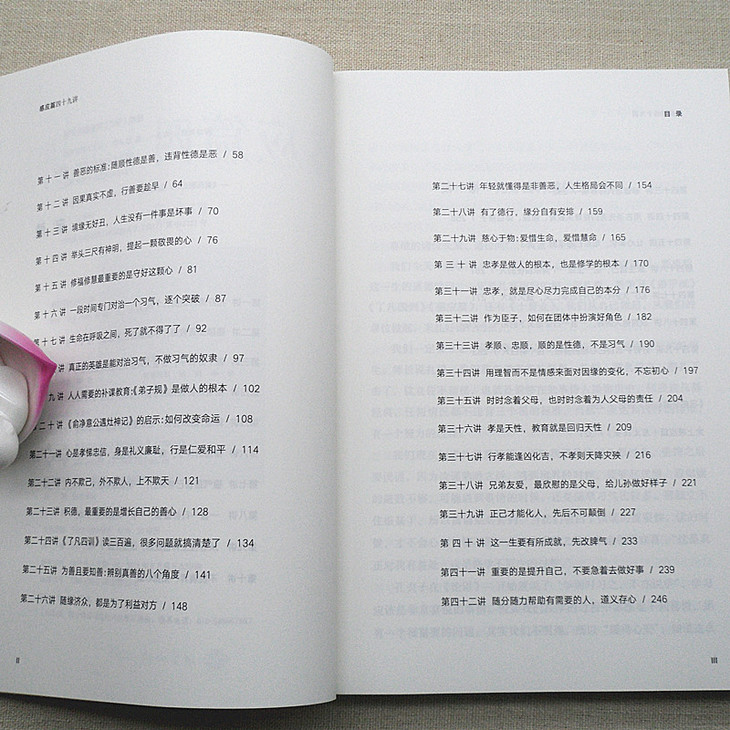 感应篇四十九讲
第十一讲 善恶的标准:随顺性德是善,违背性德是恶 / 58
第十二讲 因果真实不虚,行善要趁早 / 64
第十三讲 境缘无好丑,人生没有一件事是坏事 / 70
第十四讲 举头三尺有神明,提起一颗敬畏的心 / 76
第十五讲 修福修慧最重要的是守好这颗心 / 81
第十六讲 一段时间专门对治一个习气,逐个突破 / 87
十七讲 生命在呼吸之间,死了就不得了了 / 92
讲 真正的英雄是能对治习气,不做习气的奴隶 / 97
九讲 人人需要的补课教育:《弟子规》是做人的根本 / 102
二十讲 《俞净意公遇灶神记》的启示:如何改变命运 / 108
第二十一讲 心是孝悌忠信,身是礼义廉耻,行是仁爱和平 / 114
第二十二讲 内不欺己,外不欺人,上不欺天 / 121
第二十三讲 积德,最重要的是增长自己的善心 / 128
第二十四讲《了凡四训》读三百遍,很多问题就搞清楚了 / 134
第二十五讲 为善且要知善:辨别真善的八个角度 / 141
第二十六讲 随缘济众,都是为了利益对方 / 148
II
目 录
第二十七讲 年轻就懂得是非善恶,人生格局会不同 / 154
第二十八讲 有了德行,缘分自有安排 / 159
第二十九讲 慈心于物:爱惜生命,爱惜慧命 / 165
第三十讲 忠孝是做人的根本,也是修学的根本 / 170
第三十一讲 忠孝,就是尽心尽力完成自己的本分 / 176
第三十二讲 作为臣子,如何在团体中扮演好角色 / 182
第三十三讲 孝顺、忠顺,顺的是性德,不是习气 / 190
第三十四讲 用理智而不是情感来面对因缘的变化,不忘初心 / 197
第三十五讲 时时念着父母,也时时念着为人父母的责任 / 204
第三十六讲 孝是天性,教育就是回归天性 / 209
第三十七讲 行孝能逢凶化吉,不孝则天降灾殃 / 216
第三十八讲 兄弟友爱,最欣慰的是父母,给儿孙做好样子 / 221
第三十九讲 正己才能化人,先后不可颠倒 / 227
第四十讲 这一生要有所成就,先改脾气 / 233
第四十一讲 重要的是提升自己,不要急着去做好事 / 239
第四十二讲 随分随力帮助有需要的人,道义存心 / 246
III